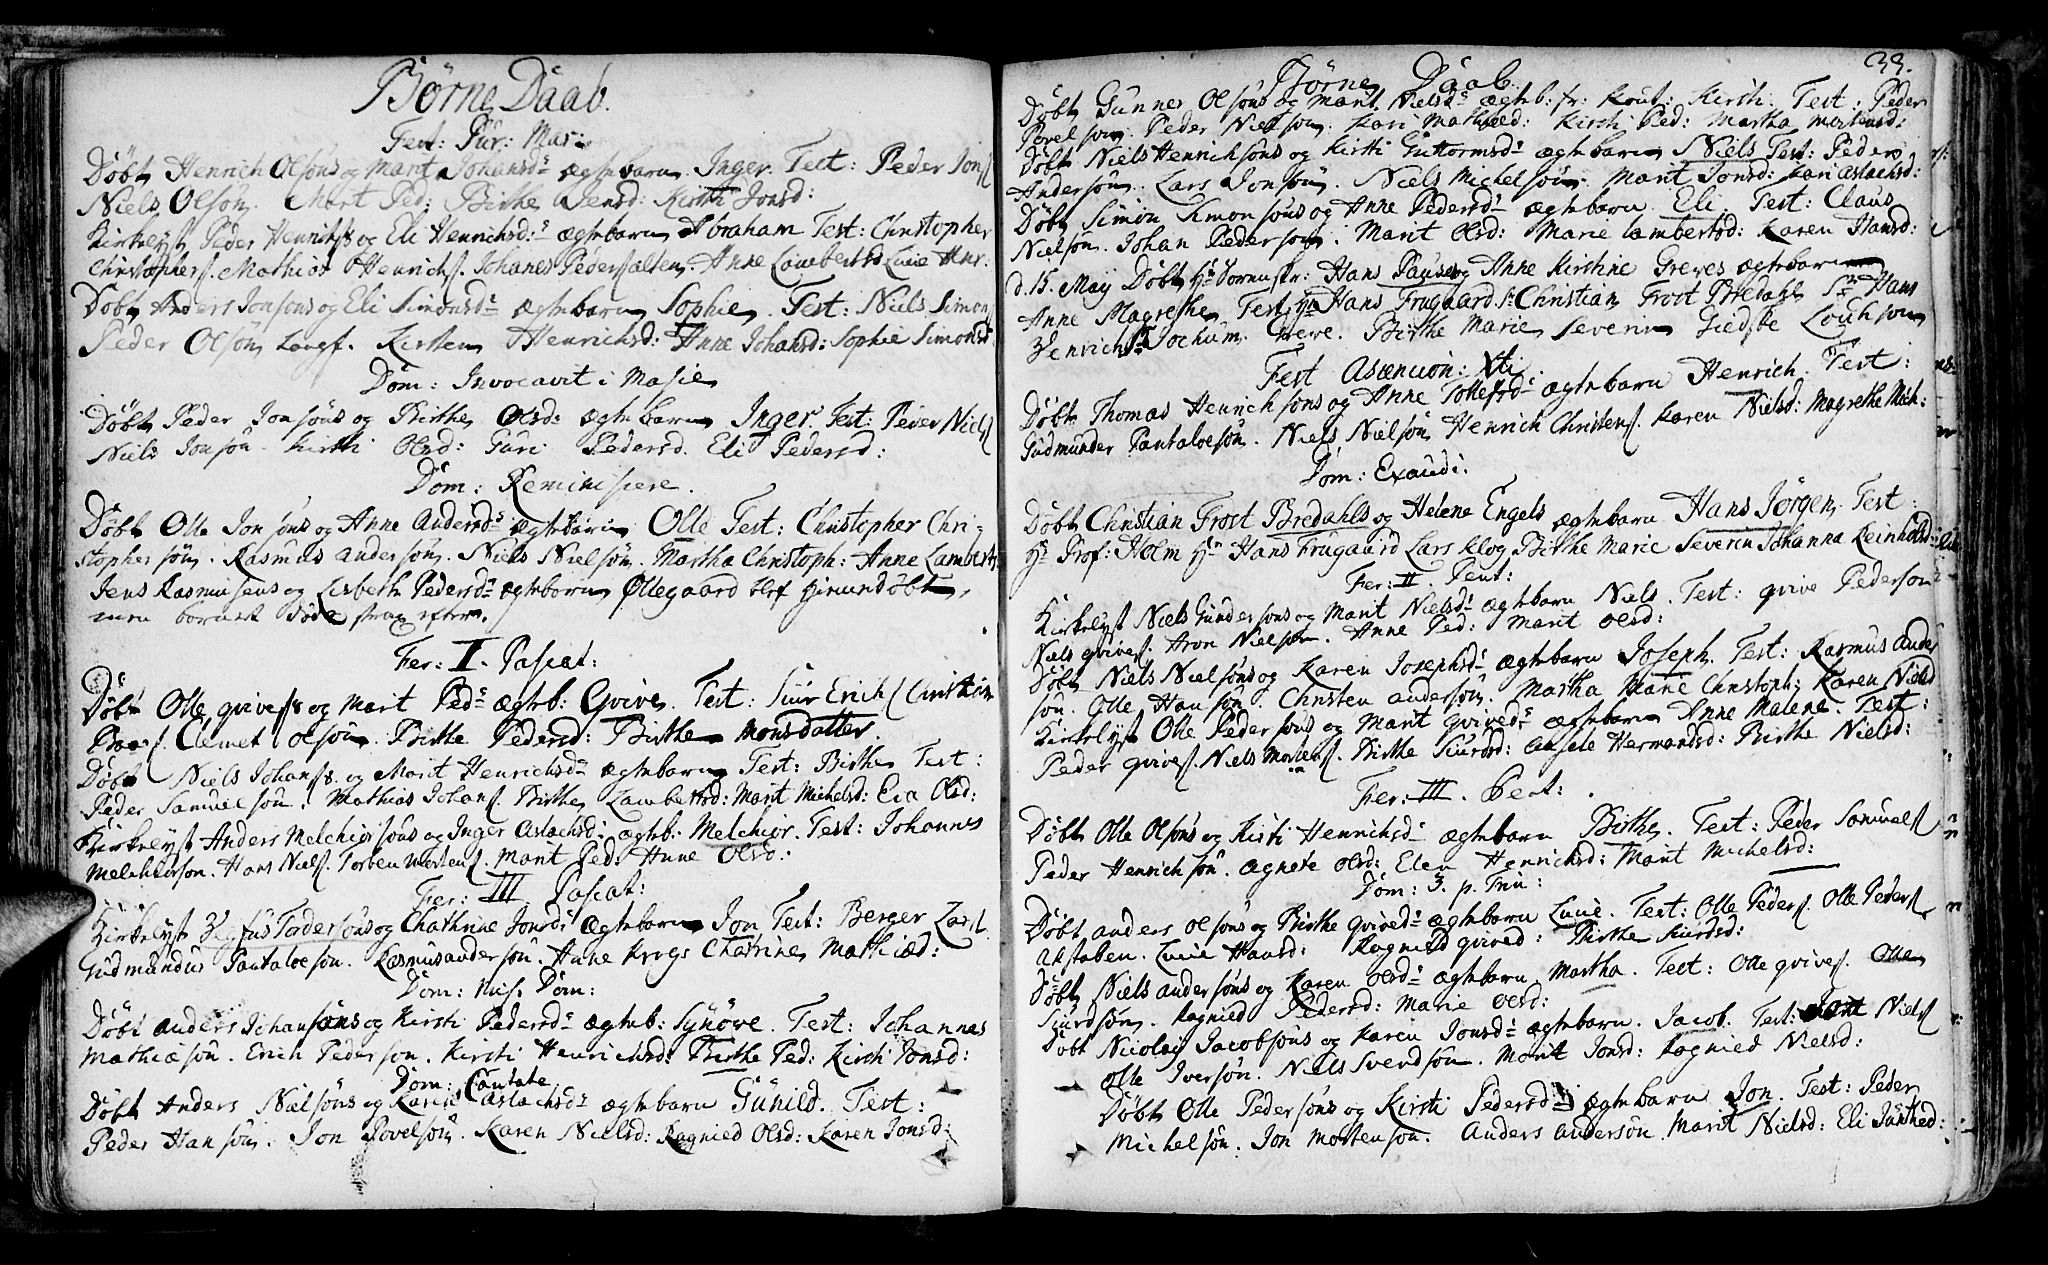 Børne Daab.
Fest: Pur: Mar:
Døbt Henrich Olsøns og Marit Johansdr ægte barn Inger. Test: Peder Jons
Niels Olsøn. Marit Ped: Birthe Jensd: Kirsti Jonsd:
Kirkelyst Peder Henrichs og Eli Henrichsd: ægte barn Abraham Test: Christopher
Christophers. Mathias Henrichs. Johanes Peders. Anne Lambertsd Lucie Henr.
Døbt Anders Jonsøns og Eli Simonsdr ægte barn Sophie. Test: Niels Simons
Peder Olsøn Kirsten Henrichsd: Anne Johansd: Sophie Simonsd:
Dom: Invocavit i Fasie
Døbt Peder Jonsøns og Birthe Olsd: ægte barn Inger. Test: Peder Niels
Niels Jonsøn. Kirsti Olsd: Guri Pedersd. Eli Pedersd:
Dom: Reminiscere.
Døbt Olle Jonsøns og Anne Andersdr ægte barn Olle Test: Christopher Chri-
stophersøn. Rasmus Andersøn. Niels Nielsøn. Martha Christoph: Anne Lamberts
Jens Rasmusens og Lisbeth Pedersdr ægte barn Øllegaard blef hiemmedøbt,
men barnet døde strax efter.
Fer: I. Pascat:
Døbt Olle Qvives og Marit Pedr ægte b: Qvive. Test: Siur Erichs Christen
Clemet Olsøn. Birthe Pedersd: Birthe Monsdatter.
Døbt Niels Johans. og Marit Henrichsdr ægte barn Test: Birthe Test:
Peder Samuelsøn. Mathias Johans. Birthe Lambertsd: Marit Michelsd: Eva Olsd:
Kirkelyst Anders Melchiorsøns og Inger Aslachsd: ægte b: Melchior. Test: Johannes
Melchiorson. Hans Niels. Torben Mortens. Marit Ped: Anne Olsd:
Fer: III Pascat:
Kirkelyst Tordersøns og Chathrine Jonsd: ægte barn Jon Test: Berger Lars.
Gudmundus Pantaloesøn. Rasmus Andersøn. Anne Krogs Chatrine Mathiæd:
Dom: Mis. Dom:
Døbt Anders Johansøns og Kirsti Pedersdr ægte b: Synøve. Test: Johannes
Mathiæsøn. Erich Pedersøn. Kirsti Henrichsd: Birthe Ped: Kirsti Jonsd:
Dom: Cantate
Døbt Anders Nielsøns og Karen Aslachsdr ægte barn Gunild. Test:
Peder Hansøn. Jon Povelsøn. Karen Nielsd: Ragnied Olsd: Karen Jonsd:
33.
Børne Daab.
Døbt Gunner Olsøns og Marit Nielsdr ægte b: Kirsti. Test: Peder
Povelsøn. Peder Nielsøn. Kari Mathiæd: Kirsti Ped: Martha Mortensd:
Døbt Niels Henrichsøns og Kirsti Guttormsdr ægte barn Niels Test: Peder
Andersøn. Lars Jonsøn. Niels Michelsøn. Marit Jonsd: Kari Aslachsd:
Døbt Simon Simonsøns og Anne Pedersdr ægte barn Eli. Test: Claus
Nielsøn. Johan Pedersøn. Marit Olsd: Marie Lambertsd: Karen Hansd:
d. 15. May Døbt Hr Sorenskr: Hans Pauses og Anne Kirstine Greves ægte barn
Anne Magrethe Test Hr Hans Frugaard Sr Christian Frost Bredahl Sr Hans
Henrich Sr Jochum Greve. Birthe Marie Severin Giedske Louhson
Fest Ascension: Xti.
Døbt Thomas Henrichsøns og Anne Tollefsdr ægte barn Henrich. Test:
Gudmunder Pantaloesøn. Niels Nielsøn Henrich Christens. Karen Nielsd: Magrethe Mich:
Dom: Exaudi.
Døbt Christian Frost Bredahls og Helene Engels ægte barn Hans Jørgen. Test:
Hr Prof: Holm Hr Hans Frugaard Lars Klog Birthe Marie Severin Johanna Reinholdsd:
Fer: II. Pent:
Kirkelyst Niels Gundersøns og Marit Nielsdr ægte barn Niels. Test: Qvive Pedersøn
Niels Qvives. Aron Nielsøn. Anne Ped: Marit Olsd:
Døbt Niels Nielsøns og Karen Josephsdr ægte barn Joseph. Test: Rasmus Ander
søn. Olle Hansøn. Christen Andersøn. Martha Marie Christoph: Karen Nielsd
Kirkelyst Olle Pedersøns og Marit Qvivedr ægte barn Anne Malene. Test:
Peder Qvives. Niels Mortens. Birthe Siursd: Anfele Hermandsd: Birthe Nielsd:
Fer: III. Pent:
Døbt Olle Olsøns og Kirsti Henrichsdr ægte barn Birthe. Test: Peder Samuels
Peder Henrichsøn. Agnete Olsd: Elen Henrichsd: Marit Michelsd:
Dom: 3. p. Trin:
Døbt Anders Olsøns og Birthe Qvivedr ægte barn Lucie. Test: Olle Peders. Olle Peders.
Akstaben. Lucie Haard: Ragnied Qvived: Birthe Siursd:
Døbt Niels Andersøns og Karen Olsdr ægte barn Martha. Test: Olle Qvives. Olle
Sjurdsøn. Ragnied Pedersd: Marie Olsd:
Døbt Nicolay Jacobsøns og Karen Jonsdr ægte barn. Jacob. Test: Niels
Olle Iversøn. Niels Svendsøn. Marit Jonsd: Ragnied Nielsd:
Døbt Olle Pedersøns og Kirsti Pedersdr ægte barn Jon. Test: Peder
Michelsøn. Jon Mortensøn. Anders Andersøn. Marit Nielsd: Eli